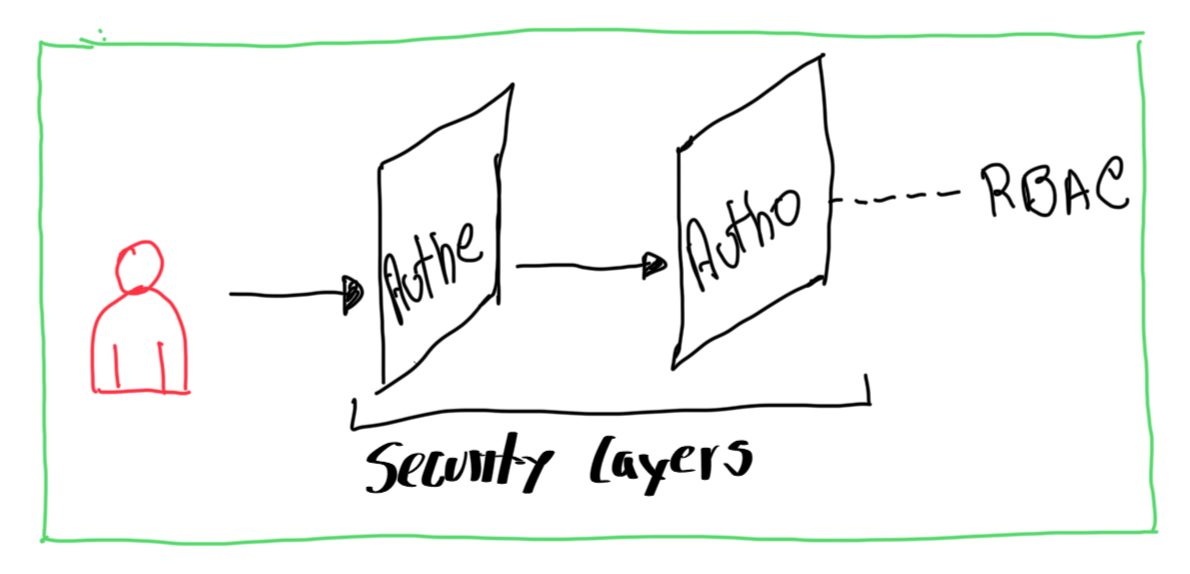 Authe
Autho
RBAC
Security Layers